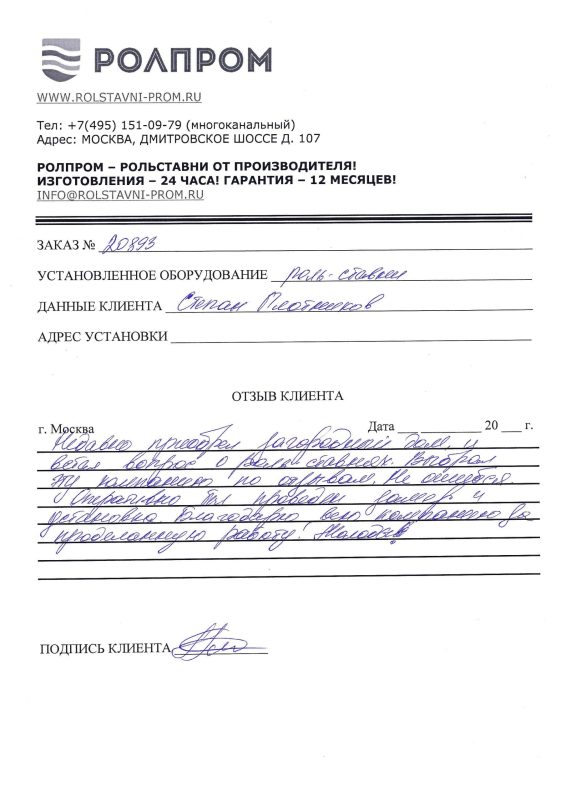 РОЛПРОМ
WWW.ROLSTAVNI-PROM.RU
Тел: +7(495) 151-09-79 (многоканальный)
Адрес: МОСКВА, ДМИТРОВСКОЕ ШОССЕ Д. 107
РОЛПРОМ – РОЛЬСТАВНИ ОТ ПРОИЗВОДИТЕЛЯ!
ИЗГОТОВЛЕНИЯ – 24 ЧАСА! ГАРАНТИЯ – 12 МЕСЯЦЕВ!
INFO@ROLSTAVNI-PROM.RU
ЗАКАЗ № 20893
УСТАНОВЛЕННОЕ ОБОРУДОВАНИЕ роль-ставни
ДАННЫЕ КЛИЕНТА Степан Плотников
АДРЕС УСТАНОВКИ
ОТЗЫВ КЛИЕНТА
г. Москва Дата 20 г.
Недавно приобрел загородный дом, и
встал вопрос о роль-ставнях. Выбрал
эту компанию по отзывам. Не ошибся.
Оперативно был проведен замер и
установка. Благодарю всю компанию за
проделанную работу! Молодцы!
ПОДПИСЬ КЛИЕНТА